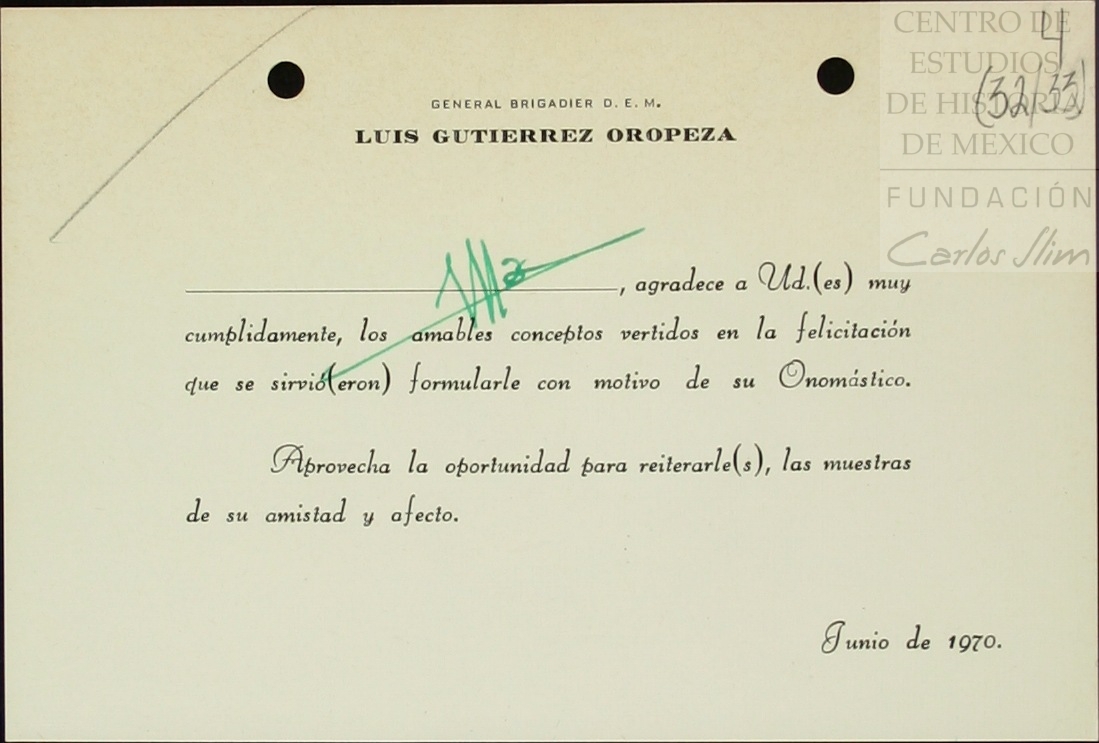 CENTRO DE
ESTUDIOS
DE HISTORIA
DE MEXICO
FUNDACIÓN
Carlos Slim
4
(32/33)
GENERAL BRIGADIER D. E. M.
LUIS GUTIERREZ OROPEZA
, agradece a Ud.(es) muy
cumplidamente, los amables conceptos vertidos en la felicitación
que se sirvió(eron) formularle con motivo de su Onomástico.
Aprovecha la oportunidad para reiterarle(s), las muestras
de su amistad y afecto.
Junio de 1970.